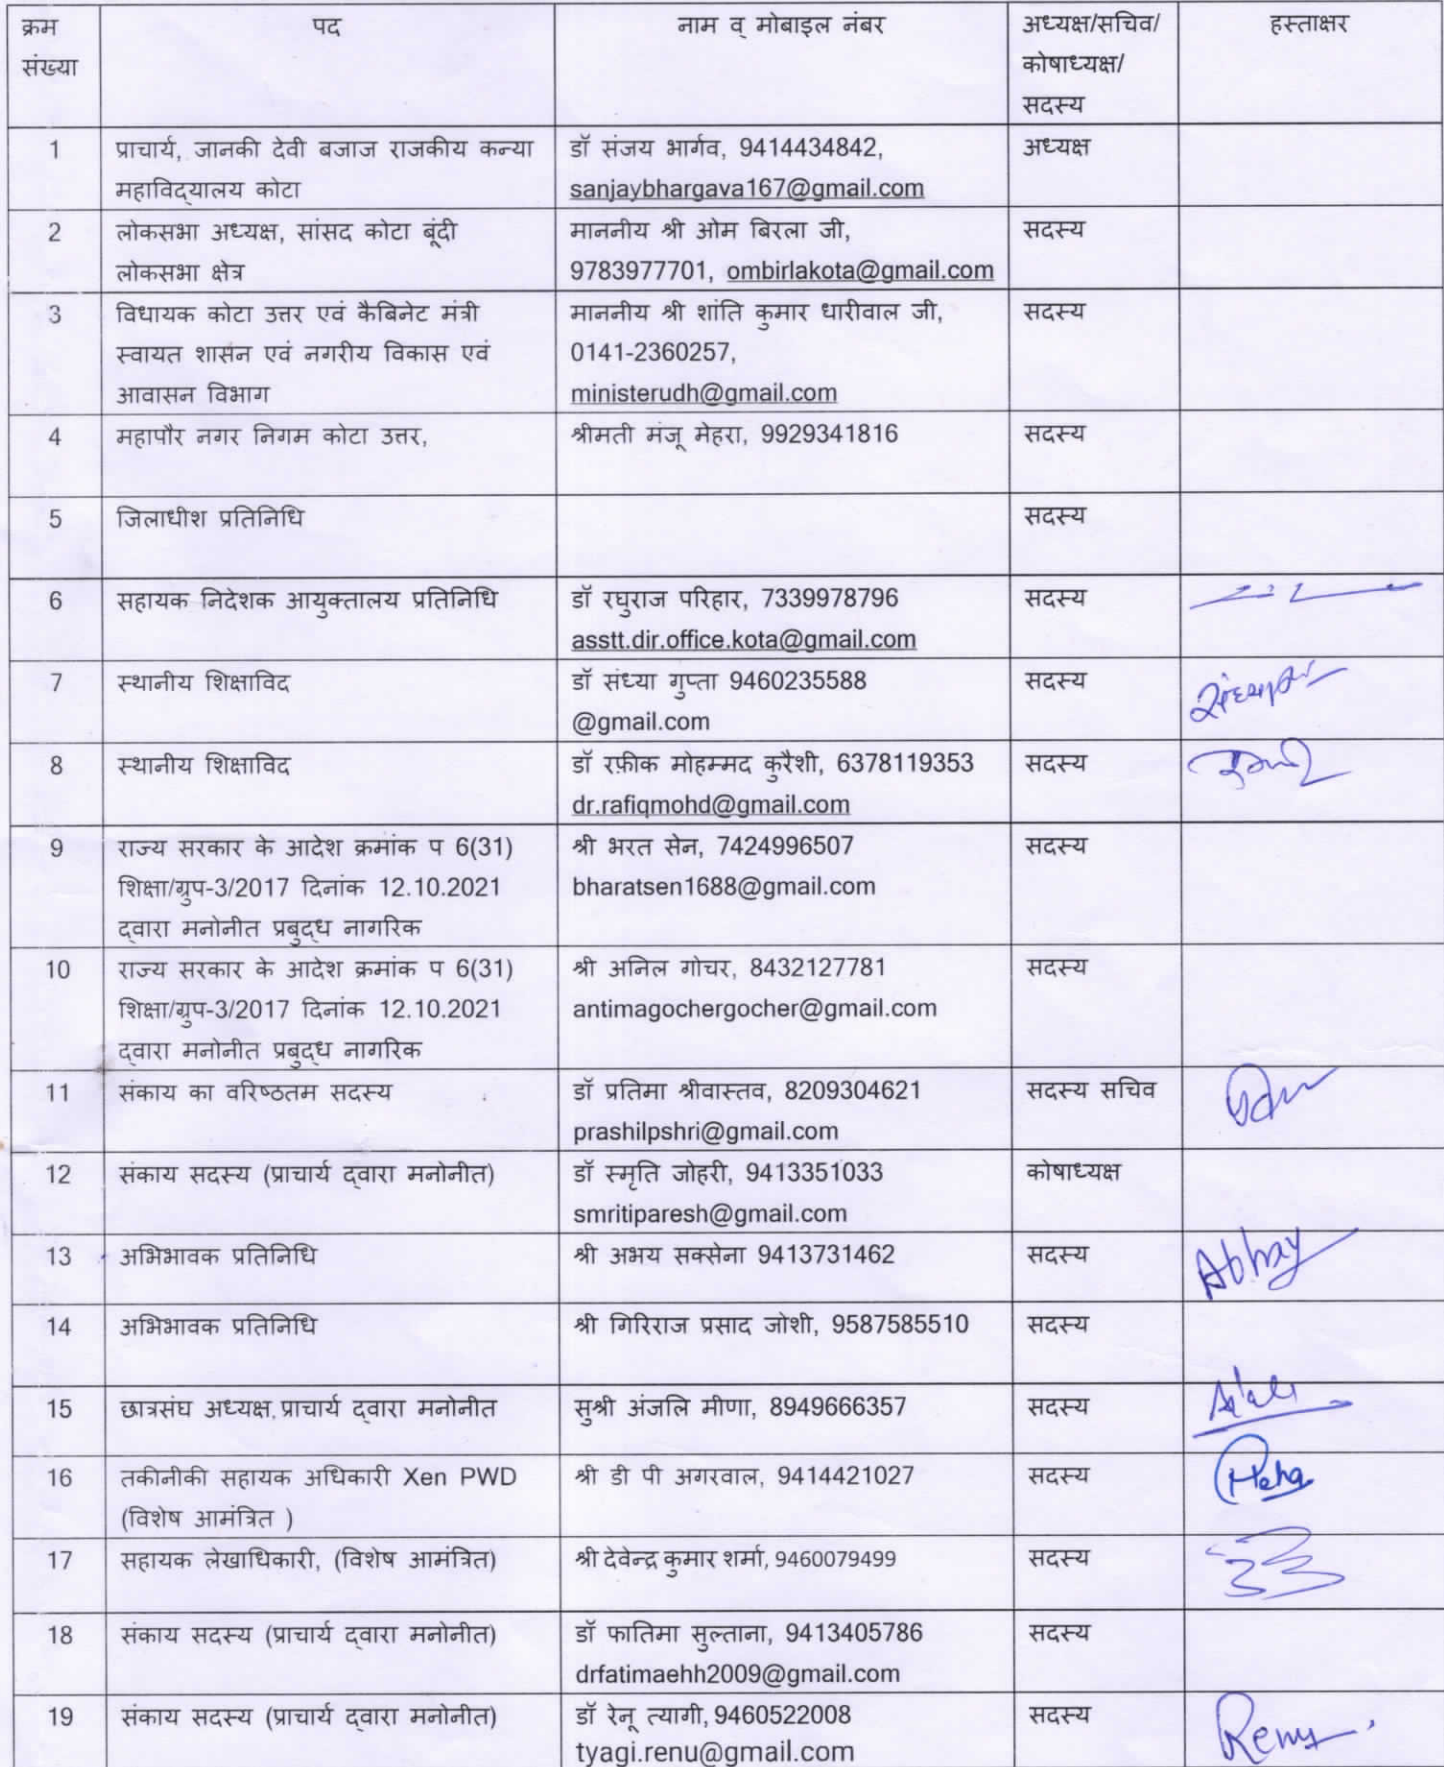 क्रम संख्या | पद | नाम व् मोबाइल नंबर | अध्यक्ष/सचिव/ कोषाध्यक्ष/ सदस्य | हस्ताक्षर
1 प्राचार्य, जानकी देवी बजाज राजकीय कन्या
महाविद्यालय कोटा
डॉ संजय भार्गव, 9414434842,
sanjaybhargava167@gmail.com
अध्यक्ष
2 लोकसभा अध्यक्ष, सांसद कोटा बूंदी
लोकसभा क्षेत्र
माननीय श्री ओम बिरला जी,
9783977701, ombirlakota@gmail.com
सदस्य
3 विधायक कोटा उत्तर एवं कैबिनेट मंत्री
स्वायत शासन एवं नगरीय विकास एवं
आवासन विभाग
माननीय श्री शांति कुमार धारीवाल जी,
0141-2360257,
ministerudh@gmail.com
सदस्य
4 महापौर नगर निगम कोटा उत्तर,
श्रीमती मंजू मेहरा, 9929341816
सदस्य
5 जिलाधीश प्रतिनिधि
सदस्य
6 सहायक निदेशक आयुक्तालय प्रतिनिधि
डॉ रघुराज परिहार, 7339978796
asstt.dir.office.kota@gmail.com
सदस्य
7 स्थानीय शिक्षाविद
डॉ संध्या गुप्ता 9460235588
@gmail.com
सदस्य
8 स्थानीय शिक्षाविद
डॉ रफ़ीक मोहम्मद कुरैशी, 6378119353
dr.rafiqmohd@gmail.com
सदस्य
9 राज्य सरकार के आदेश क्रमांक प 6(31)
शिक्षा/ग्रुप-3/2017 दिनांक 12.10.2021
द्वारा मनोनीत प्रबुद्ध नागरिक
श्री भरत सेन, 7424996507
bharatsen1688@gmail.com
सदस्य
10 राज्य सरकार के आदेश क्रमांक प 6(31)
शिक्षा/ग्रुप-3/2017 दिनांक 12.10.2021
द्वारा मनोनीत प्रबुद्ध नागरिक
श्री अनिल गोचर, 8432127781
antimagochergocher@gmail.com
सदस्य
11 संकाय का वरिष्ठतम सदस्य
डॉ प्रतिमा श्रीवास्तव, 8209304621
prashilpshri@gmail.com
सदस्य सचिव
12 संकाय सदस्य (प्राचार्य द्वारा मनोनीत)
डॉ स्मृति जोहरी, 9413351033
smritiparesh@gmail.com
कोषाध्यक्ष
13 अभिभावक प्रतिनिधि
श्री अभय सक्सेना 9413731462
सदस्य
Abhay
14 अभिभावक प्रतिनिधि
श्री गिरिराज प्रसाद जोशी, 9587585510
सदस्य
15 छात्रसंघ अध्यक्ष,प्राचार्य द्वारा मनोनीत
सुश्री अंजलि मीणा, 8949666357
सदस्य
16 तकीनीकी सहायक अधिकारी Xen PWD
(विशेष आमंत्रित )
श्री डी पी अगरवाल, 9414421027
सदस्य
17 सहायक लेखाधिकारी, (विशेष आमंत्रित)
श्री देवेन्द्र कुमार शर्मा, 9460079499
सदस्य
18 संकाय सदस्य (प्राचार्य द्वारा मनोनीत)
डॉ फातिमा सुल्ताना, 9413405786
drfatimaehh2009@gmail.com
सदस्य
19 संकाय सदस्य (प्राचार्य द्वारा मनोनीत)
डॉ रेनू त्यागी, 9460522008
tyagi.renu@gmail.com
सदस्य
Renu